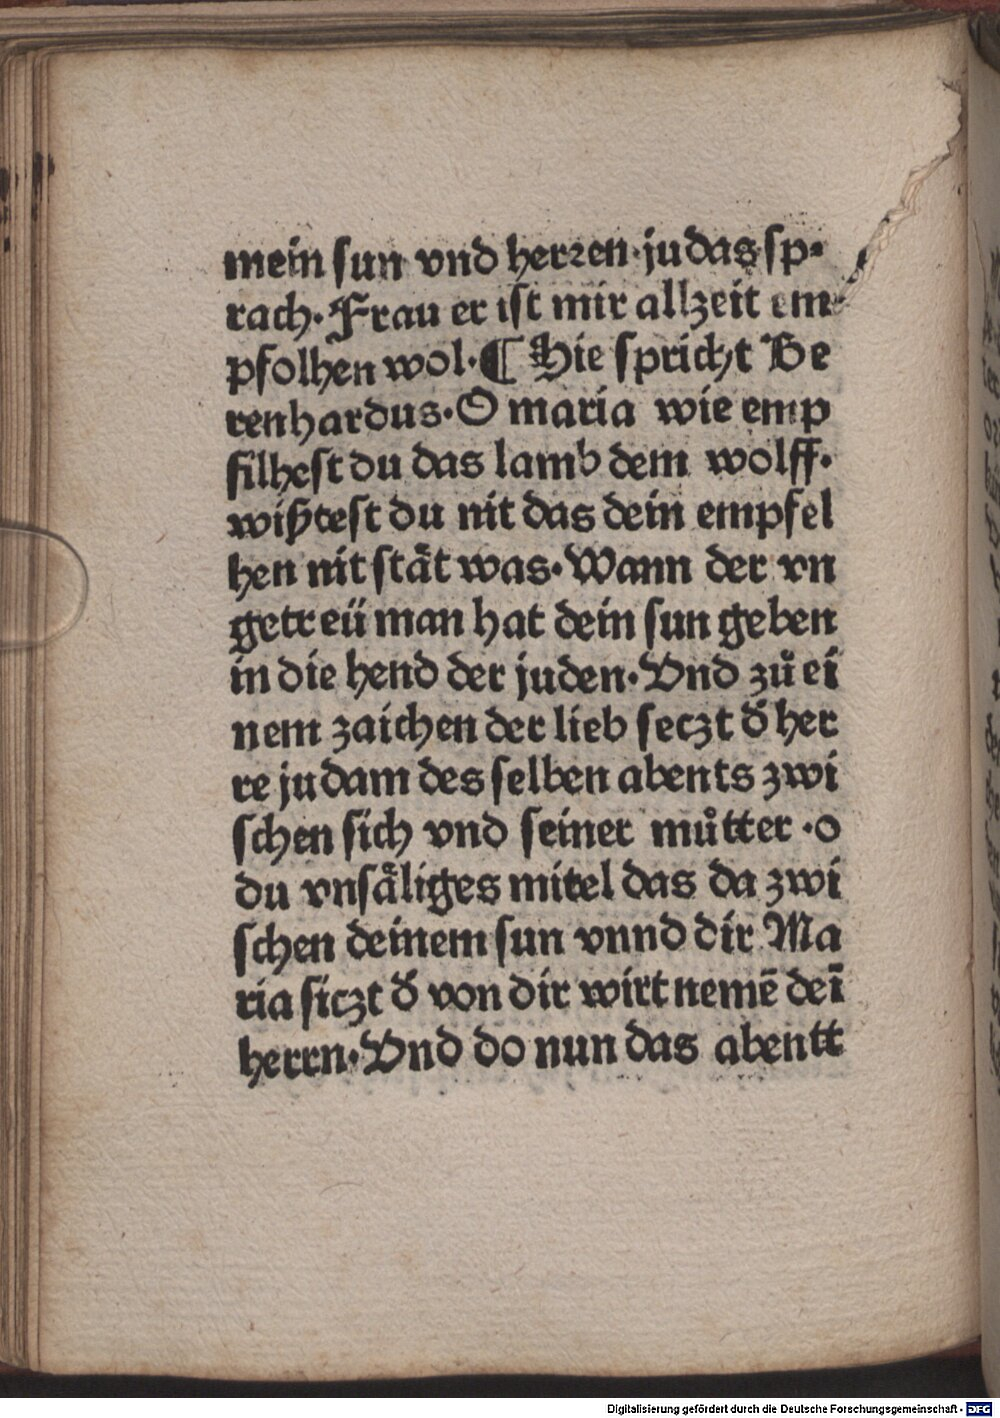 mein sun vnd herꝛen·judas sp-
rach·Frau er ist mir allzeit em-
pfolhen wol·¶ Hie spricht Be
renhardus·O maria wie emp
filhest du das lamb dem wolff·
wißtest du nit das dein empfel
hen nit stät was·Wann der vn
getreü man hat dein sun geben
in die hend der juden·Vnd zů ei
nem zaichen der lieb seczt d̕ her
re judam des selben abents zwi
schen sich vnd seiner můtter·o
du vnsäliges mitel das da zwi
schen deinem sun vnnd dir Ma
ria siczt d̕ von dir wirt nemē deī
herrn·Vnd do nun das abentt
Digitalisierung gefördert durch die Deutsche Forschungsgemeinschaft - DFG